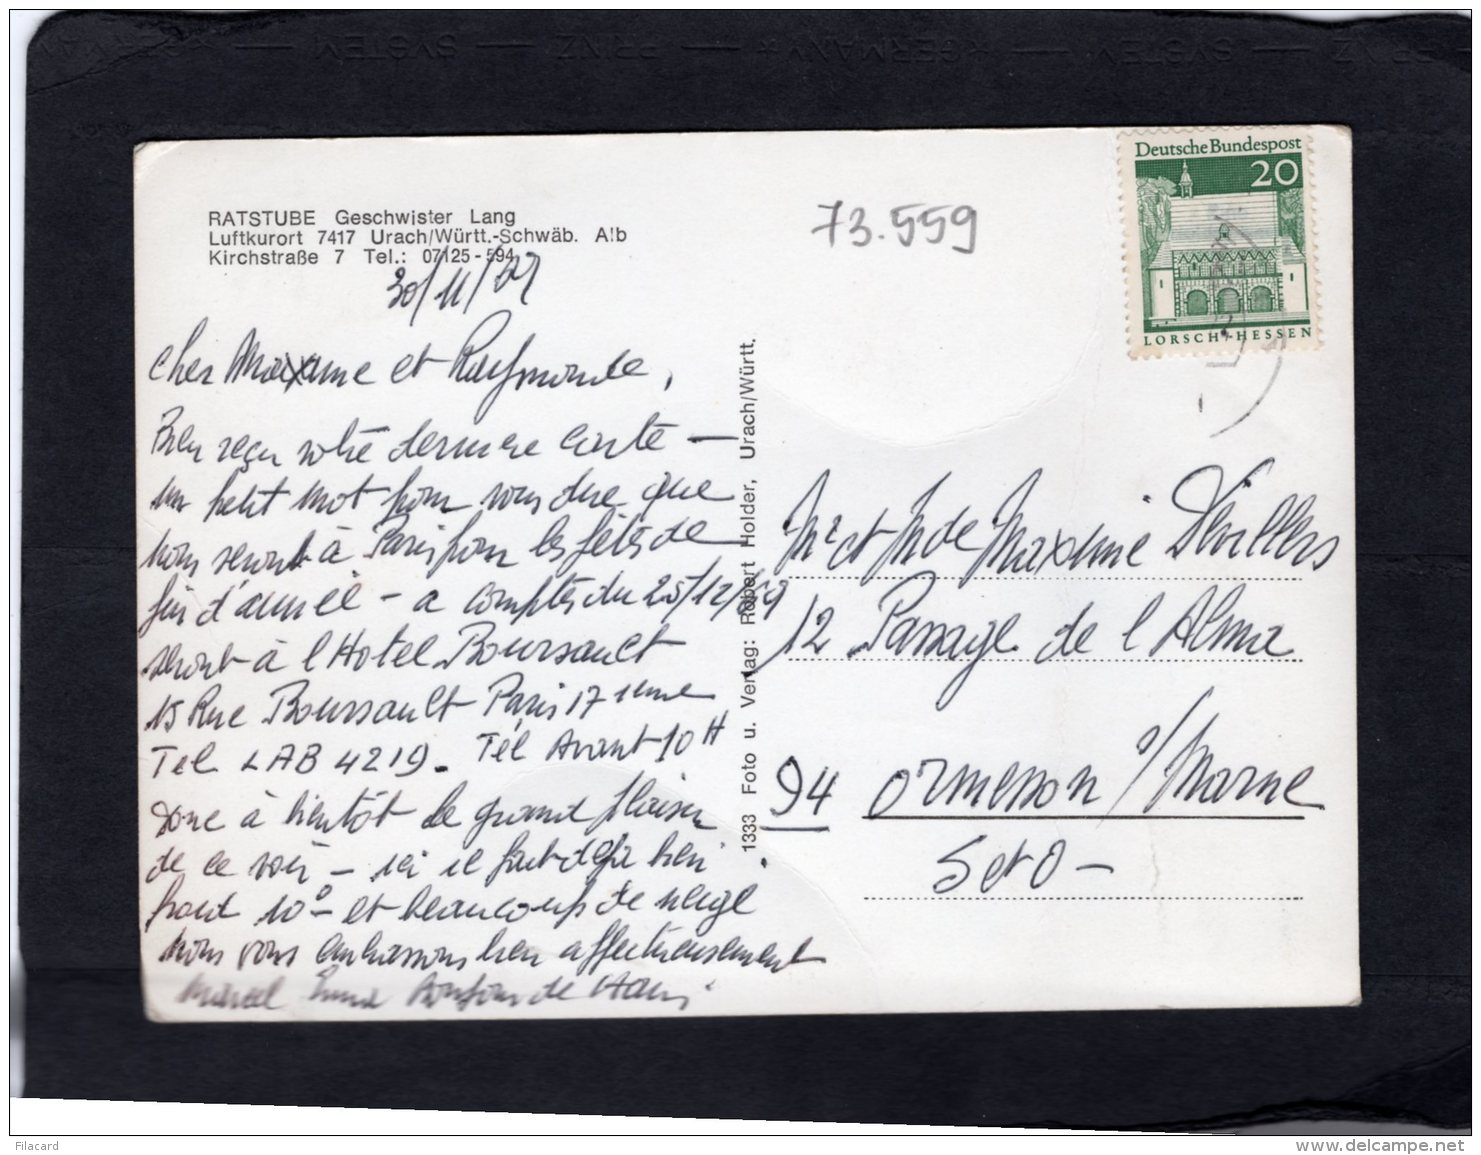 RATSTUBE Geschwister Lang
Luftkurort 7417 Urach/Württ.-Schwäb. Alb
Kirchstraße 7 Tel.: 07125-594
30/11/69
Cher Maxime et Raymonde,
Bien reçu votre dernière carte —
un petit mot pour vous dire que
nous serons à Paris pour les fêtes de
fin d'année - a comptés du 20/12/69
serons à l'Hotel Boursault
15 Rue Boursault Paris 17 ieme
Tel LAB 4219. Tél Avant 10 H
Donc à bientôt le grand plaisir
de ce voir - ici il fait deja bien
froid 10° - et beaucoup de neige
nous vous embrassons bien affectueusement
Marcel Bonjour de
1333 Foto u. Verlag: Robert Holder, Urach/Württ.
73.559
Deutsche Bundespost
20
LORSCH-HESSEN
Mr et Mde Maxime Devillers
12 Passage de l'Alma
94 Ormesson s/Marne
Set O -
PRINZ SYSTEM GERMANY PRINZ SYSTEM
Filacard
www.delcampe.net